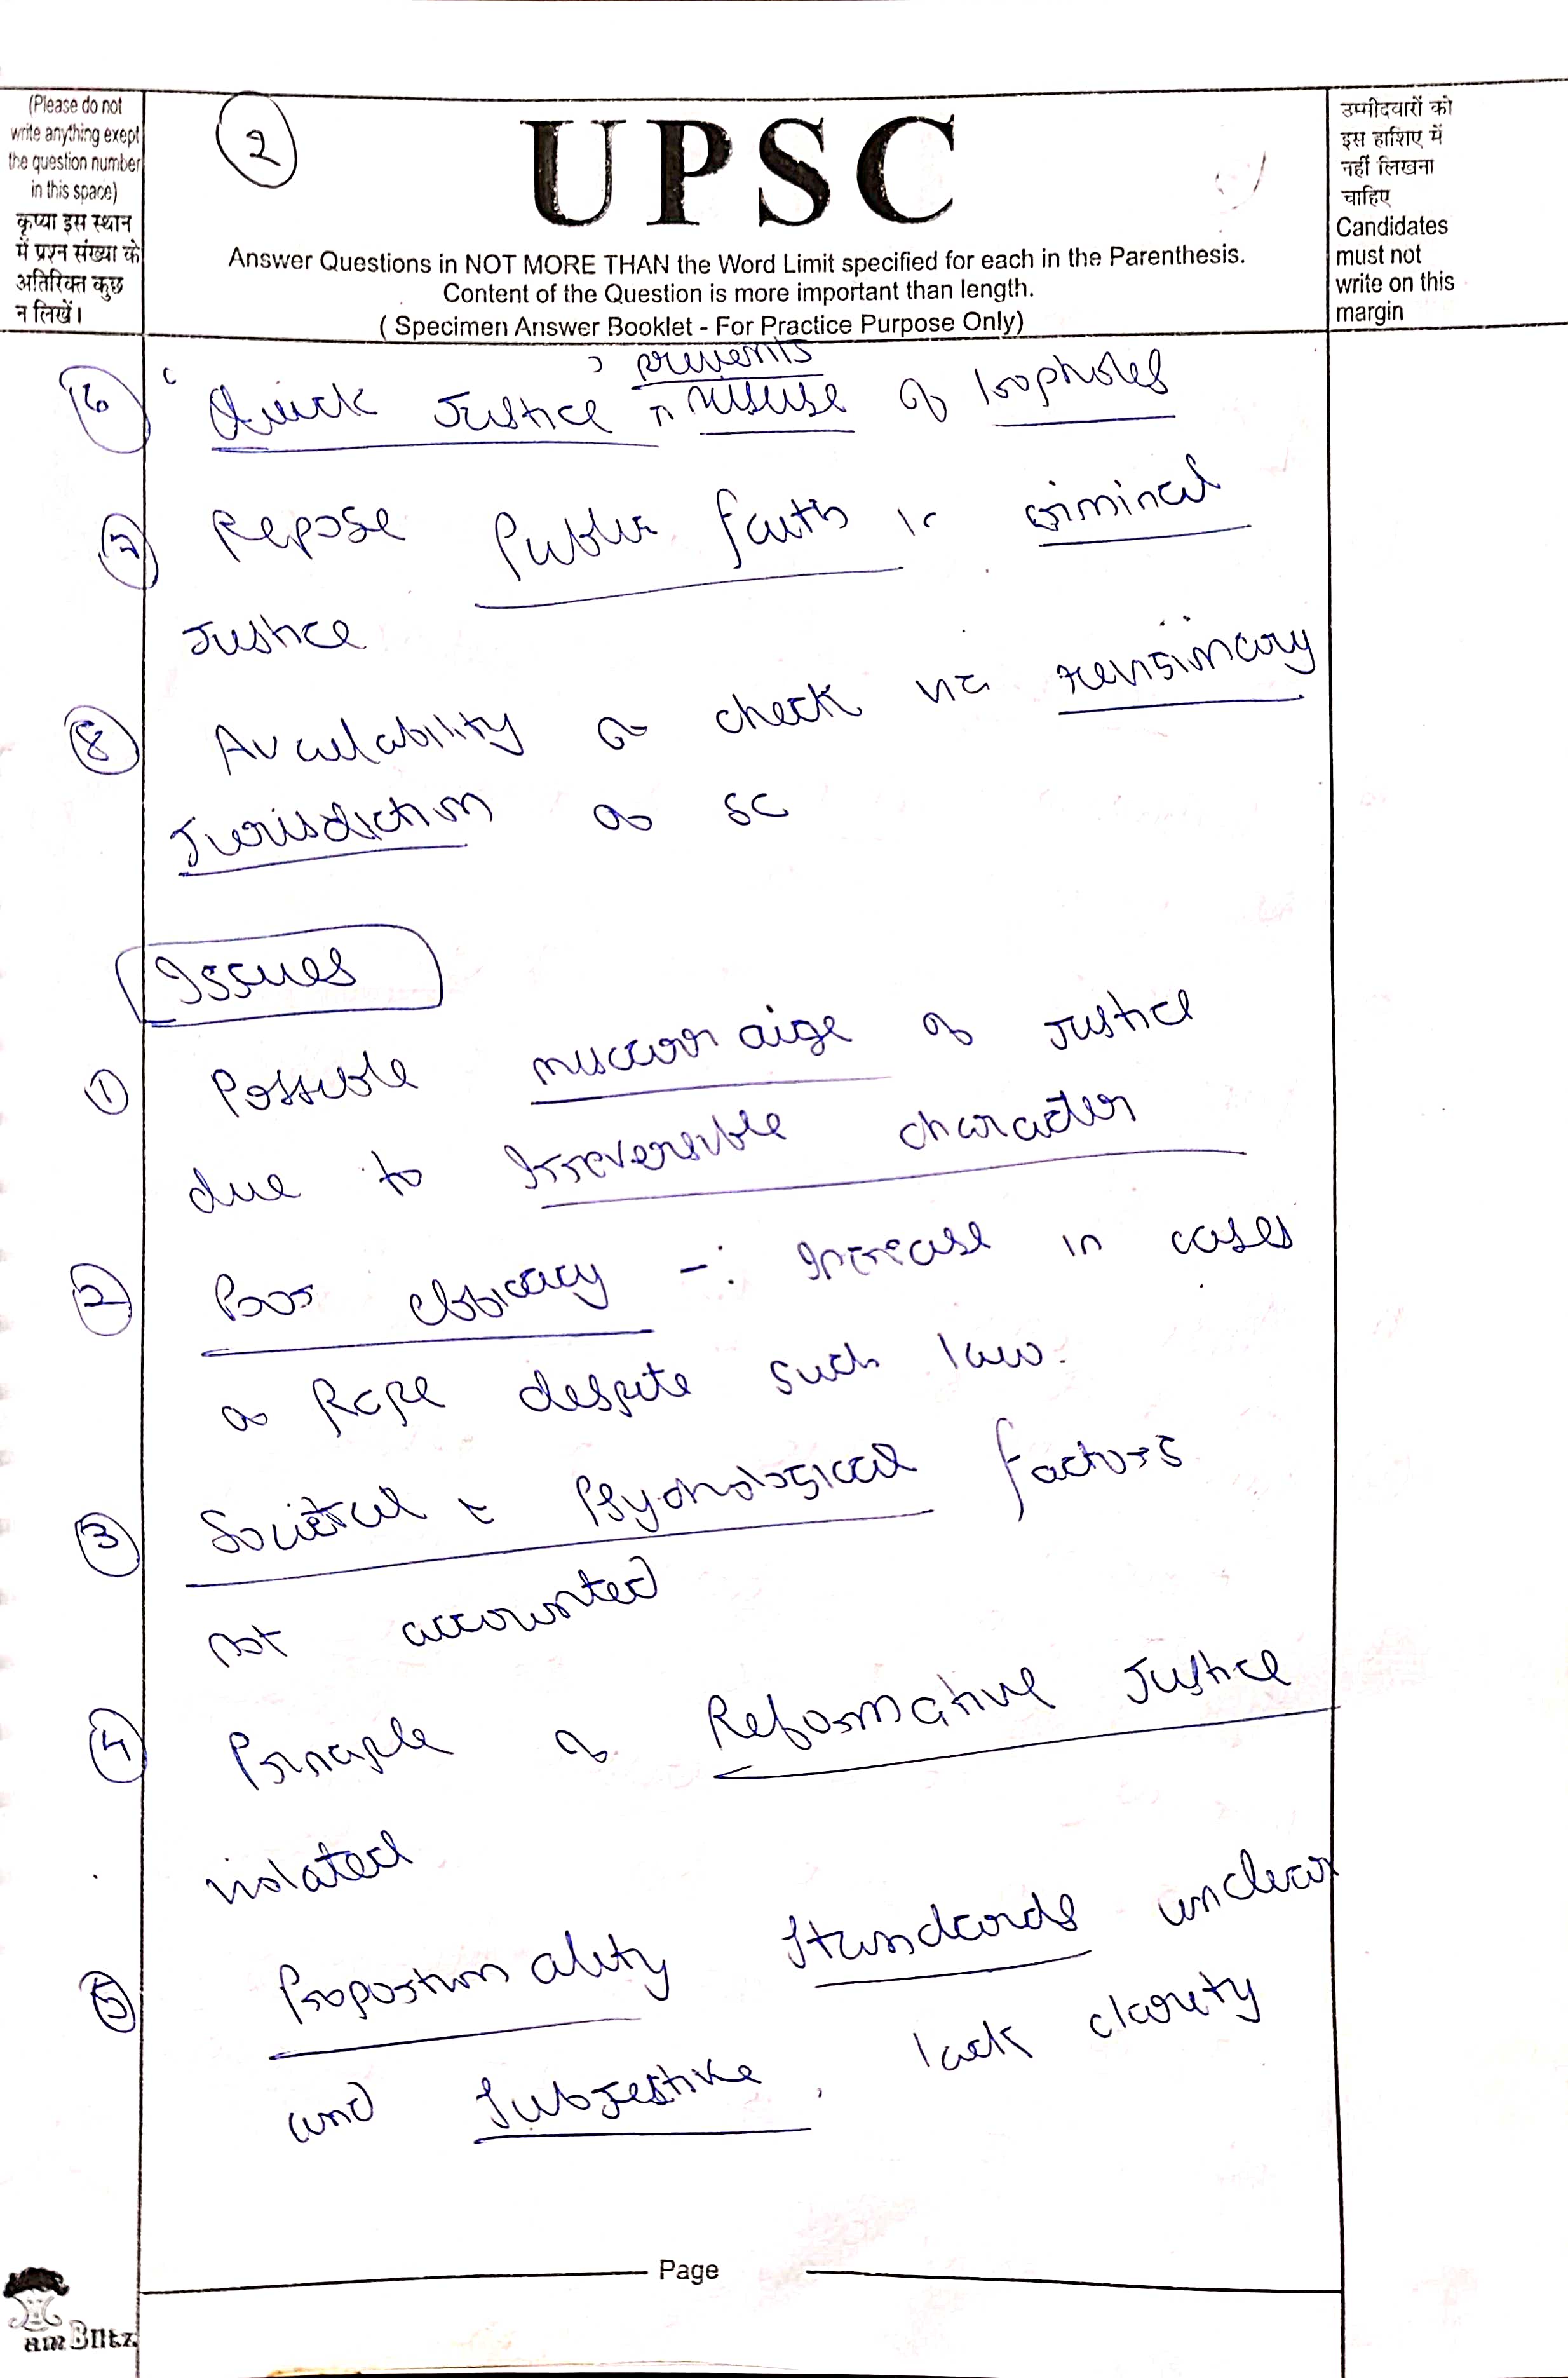 (Please do not
write anything exept
the question number
in this space)
कृप्या इस स्थान
में प्रश्न संख्या के
अतिरिक्त कुछ
न लिखें।
2
UPSC
Answer Questions in NOT MORE THAN the Word Limit specified for each in the Parenthesis.
Content of the Question is more important than length.
( Specimen Answer Booklet - For Practice Purpose Only)
उम्मीदवारों को
इस हाशिए में
नहीं लिखना
चाहिए
Candidates
must not
write on this
margin
prevents
6 Quick Justice misuse of loopholes
7 Repose Public faith in criminal
Justice
8 Availability of check via revisionary
Jurisdiction of SC
Issues
1 Possible miscarraige of Justice
due to Irreversible character
2 Poor efficacy -: Increase in cases
of Rape despite such law.
3 Societal & Psychological factors
not accounted
4 Principle of Reformative Justice
violated
5 Proportionality Standards unclear
and Subjective, lack clarity
Page